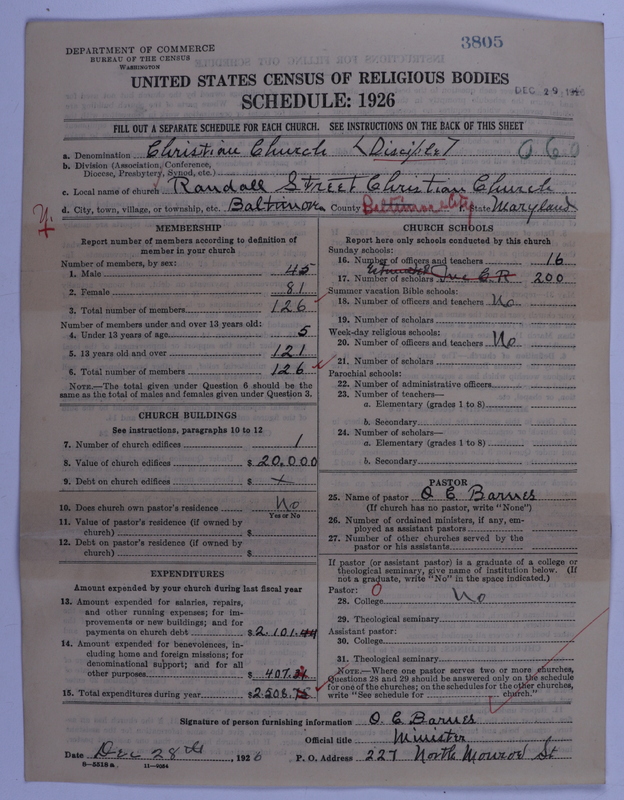 3805
DEPARTMENT OF COMMERCE
BUREAU OF THE CENSUS
WASHINGTON
UNITED STATES CENSUS OF RELIGIOUS BODIES
SCHEDULE: 1926
DEC 29 1926
FILL OUT A SEPARATE SCHEDULE FOR EACH CHURCH. SEE INSTRUCTIONS ON THE BACK OF THIS SHEET
a. Denomination Christian Church (Disciple) 060
b. Division (Association, Conference, Diocese, Presbytery, Synod, etc.)
c. Local name of church Randall Street Christian Church
d. City, town, village, or township, etc. Baltimore County Baltimore City State Maryland
MEMBERSHIP
Report number of members according to definition of
member in your church
Number of members, by sex:
1. Male 45
2. Female 81
3. Total number of members 126
Number of members under and over 13 years old:
4. Under 13 years of age 5
5. 13 years old and over 121
6. Total number of members 126
NOTE.—The total given under Question 6 should be the
same as the total of males and females given under Question 3.
CHURCH BUILDINGS
See instructions, paragraphs 10 to 12
7. Number of church edifices 1
8. Value of church edifices $ 20.000
9. Debt on church edifices $ x
10. Does church own pastor's residence No
Yes or No
11. Value of pastor's residence (if owned by
church) $
12. Debt on pastor's residence (if owned by
church) $
EXPENDITURES
Amount expended by your church during last fiscal year
13. Amount expended for salaries, repairs,
and other running expenses; for im-
provements or new buildings; and for
payments on church debt $ 2.101.44
14. Amount expended for benevolences, in-
cluding home and foreign missions; for
denominational support; and for all
other purposes $ 407.
15. Total expenditures during year $ 2508.
CHURCH SCHOOLS
Report here only schools conducted by this church
Sunday schools:
16. Number of officers and teachers 16
17. Number of scholars Inc C R 200
Summer vacation Bible schools:
18. Number of officers and teachers No
19. Number of scholars
Week-day religious schools:
20. Number of officers and teachers No
21. Number of scholars
Parochial schools:
22. Number of administrative officers
23. Number of teachers—
a. Elementary (grades 1 to 8)
b. Secondary
24. Number of scholars—
a. Elementary (grades 1 to 8)
b. Secondary
PASTOR
25. Name of pastor O E Barnes
(If church has no pastor, write "None")
26. Number of ordained ministers, if any, em-
ployed as assistant pastors
27. Number of other churches served by the
pastor or his assistants
If pastor (or assistant pastor) is a graduate of a college or
theological seminary, give name of institution below. (If
not a graduate, write "No" in the space indicated.)
Pastor: O
28. College No
29. Theological seminary
Assistant pastor:
30. College
31. Theological seminary
NOTE.—Where one pastor serves two or more churches,
Questions 28 and 29 should be answered only on the schedule
for one of the churches; on the schedules for the other churches,
write "See schedule for church."
Signature of person furnishing information O. E Barnes
Official title Minister
Date Dec 28th, 1926 P. O. Address 227 North Monroe St
8-5518a 11-9034